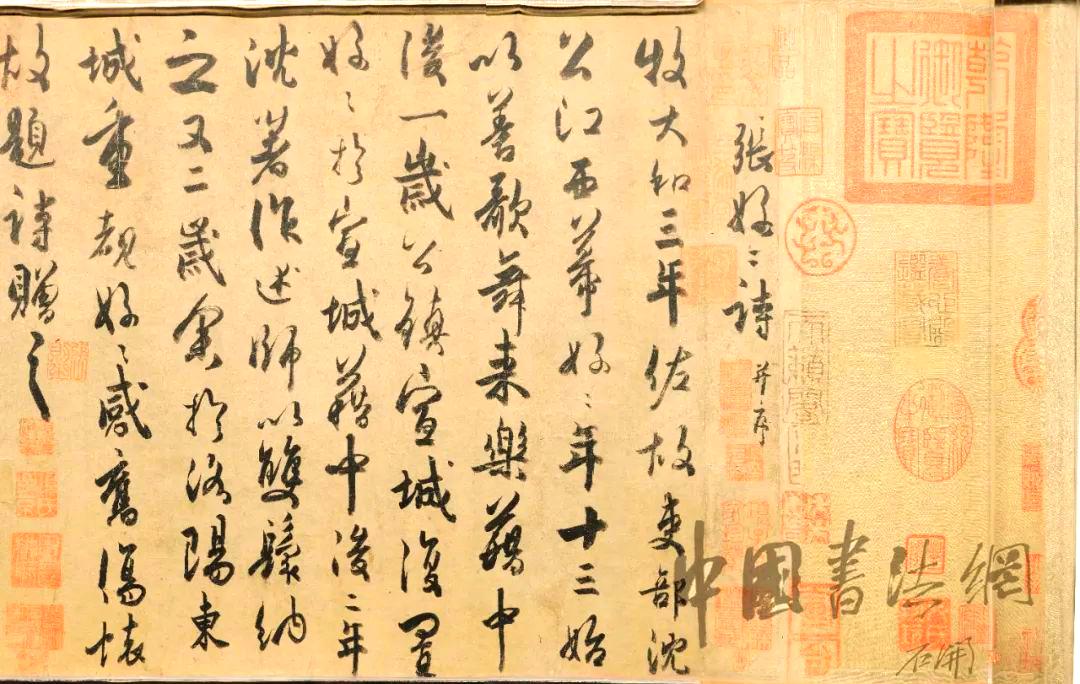 乾隆御覽之寶
張好〻詩 并序
牧大和三年佐故吏部沈
公江西幕好〻年十三始
以善歌舞来樂籍中
後一歲公鎮宣城復置
好〻於宣城籍中後二年
沈著作述師以雙鬟納
之又二歲余於洛陽東
城重覩好〻感舊傷懷
故題詩贈之
中國書法網
石開